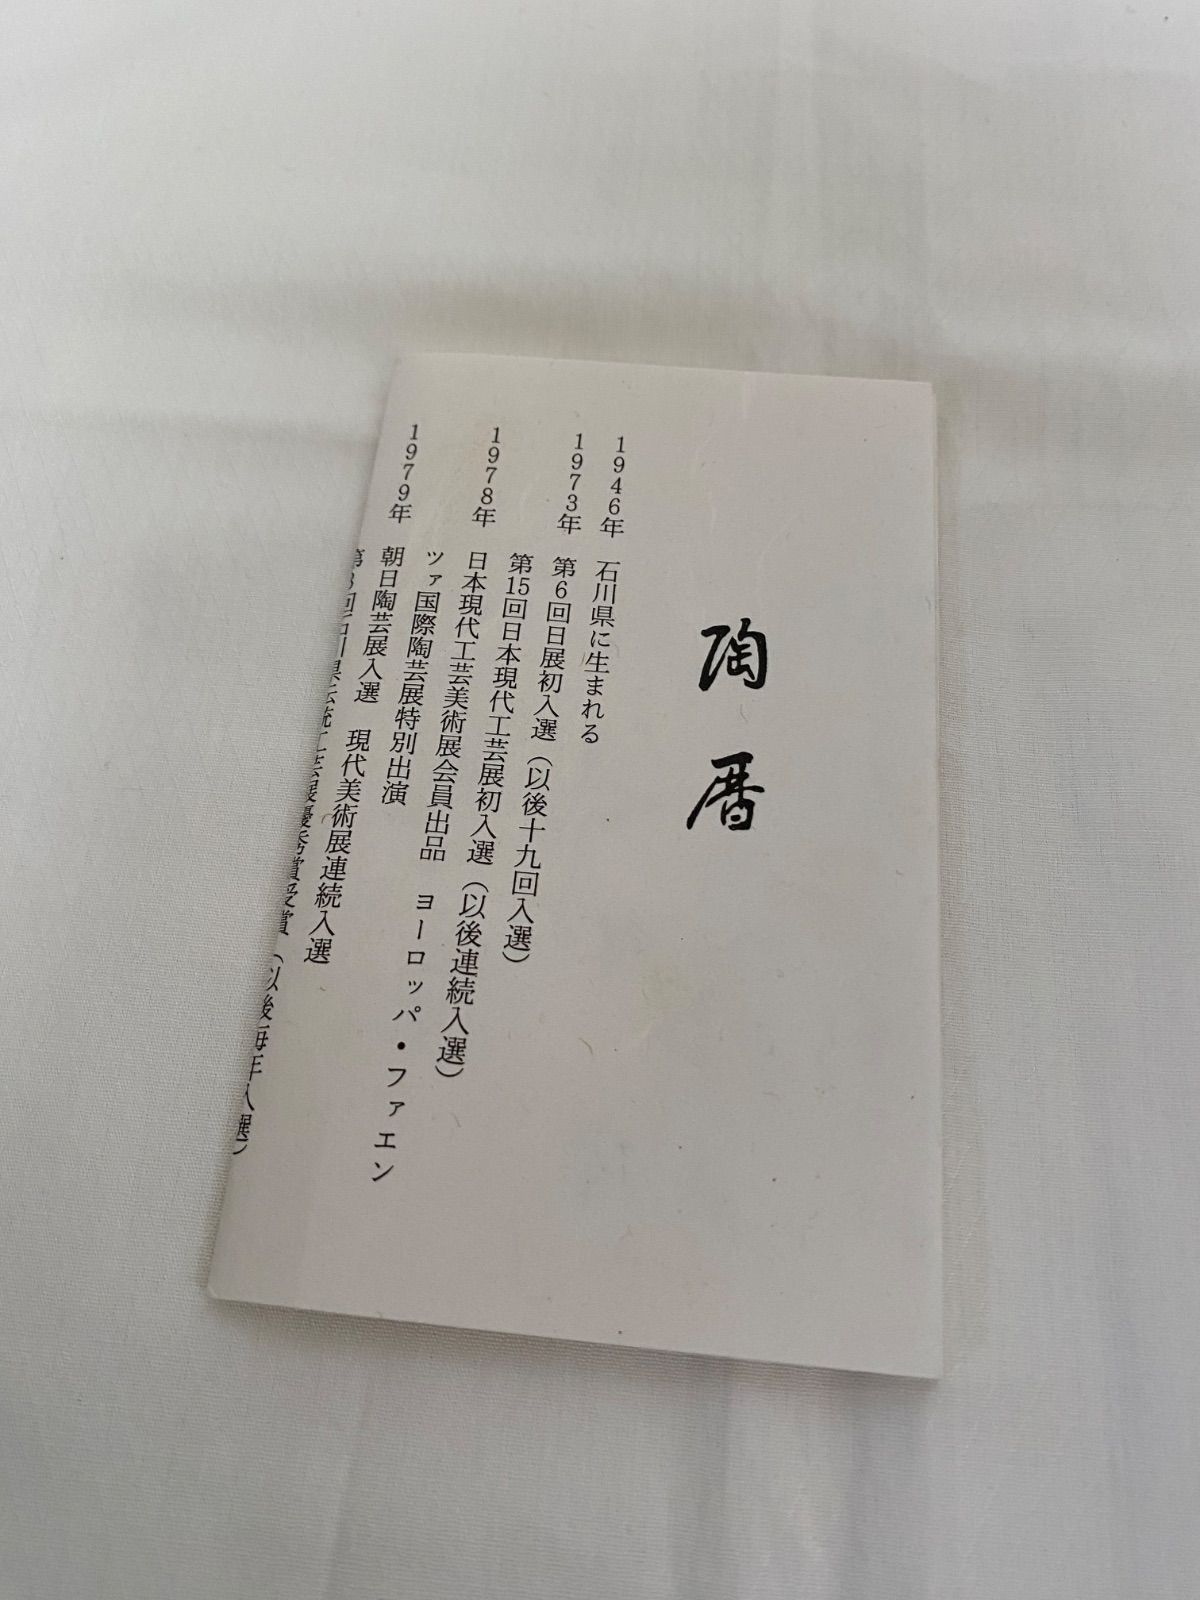 陶暦
1946年 石川県に生まれる
1973年 第6回日展初入選(以後十九回入選)
第15回日本現代工芸展初入選(以後連続入選)
1978年 日本現代工芸美術展会員出品 ヨーロッパ・ファエン
ツァ国際陶芸展特別出演
1979年 朝日陶芸展入選 現代美術展連続入選
回石川県伝統工芸展優秀賞受賞(以後毎年入選)